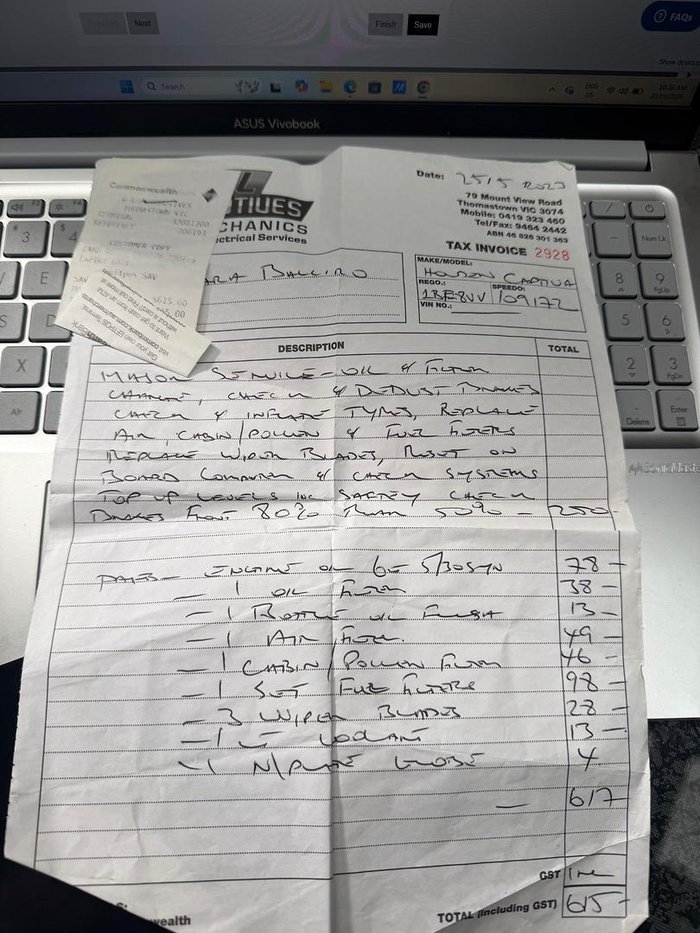 Next
Finish
Save
FAQs
Search
ENG
US
ASUS Vivobook
Commonwealth
THOMASTOWN VIC
CUSTOMER COPY
SAV
$615.00
L
CHANICS
ectrical Services
Date: 25/5 2023
79 Mount View Road
Thomastown VIC 3074
Mobile: 0419 323 460
Tel/Fax: 9464 2442
ABN 46 826 301 363
TAX INVOICE 2928
ARA BALLIRO
MAKE/MODEL:
HOLDEN CAPTIVA
REGO.: SPEEDO:
1BE8VV 109172
VIN NO.:
DESCRIPTION TOTAL
MAJOR SERVICE - OIL & FILTER
CHANGE, CHECK & DEDUST BRAKES
CHECK & INFLATE TYRES, REPLACE
AIR, CABIN/POLLEN & FUEL FILTERS
REPLACE WIPER BLADES, RESET ON
BOARD COMPUTER & CHECK SYSTEMS
TOP UP LEVELS INC SAFTEY CHECK
BRAKES FRONT 80% REAR 50% - 250-
PARTS - ENGINE OIL 6L 5/30SYN 78-
- 1 OIL FILTER 38-
- 1 BOTTLE OIL FLUSH 13-
- 1 AIR FILTER. 49-
- 1 CABIN/POLLEN FILTER 46-
- 1 SET FUEL FILTERS 98-
- 3 WIPER BLADES 28-
- 1 LT COOLANT 13-
- 1 N/PLATE GLOBE 4
- 617
GST INC
wealth TOTAL (Including GST) 615-